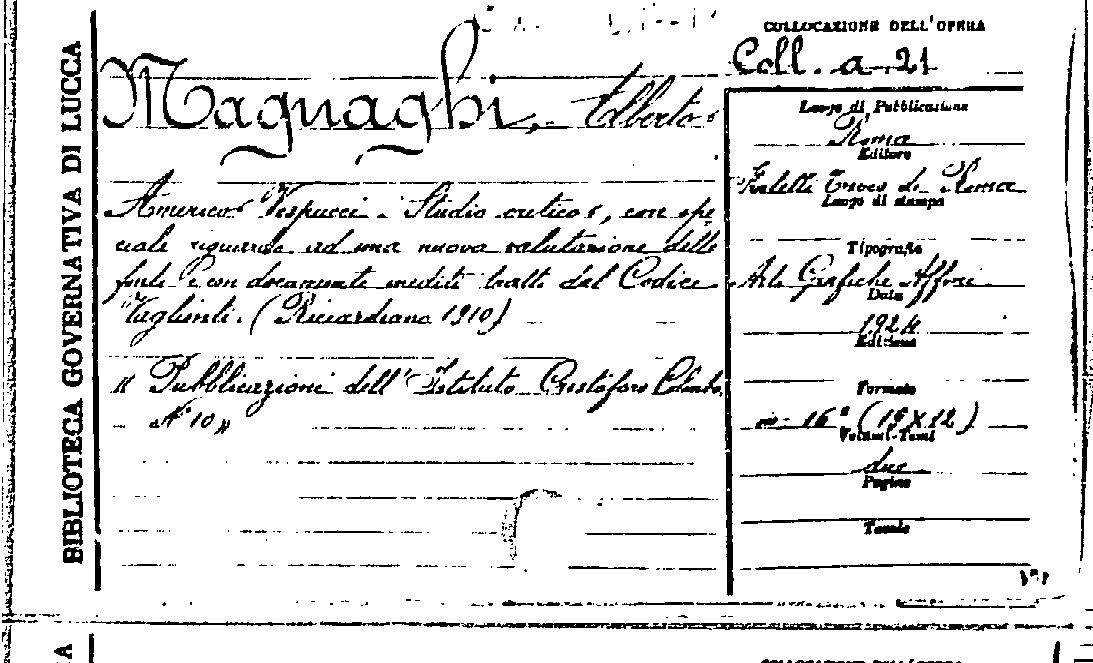 BIBLIOTECA GOVERNATIVA DI LUCCA
COLLOCAZIONE DELL'OPERA
Coll. a-21
Magnaghi, Alberto
Americo Vespucci. Studio critico, con spe
ciale riguardo ad una nuova valutazione delle
fonti e con documenti inediti tratti dal Codice
Vaglienti. (Riccardiano 1910)
" Pubblicazioni dell'Istituto Cristoforo Colombo,
N° 10 "
Luogo di Pubblicazione
Roma
Editore
Fratelli Treves di Roma
Luogo di stampa
Tipografia
Arti Grafiche Affori
Data
1924
Edizione
Formato
in-16° (19X12)
Volumi-Tomi
due
Pagine
Tavole
COLLOCAZIONE DELL'OPERA